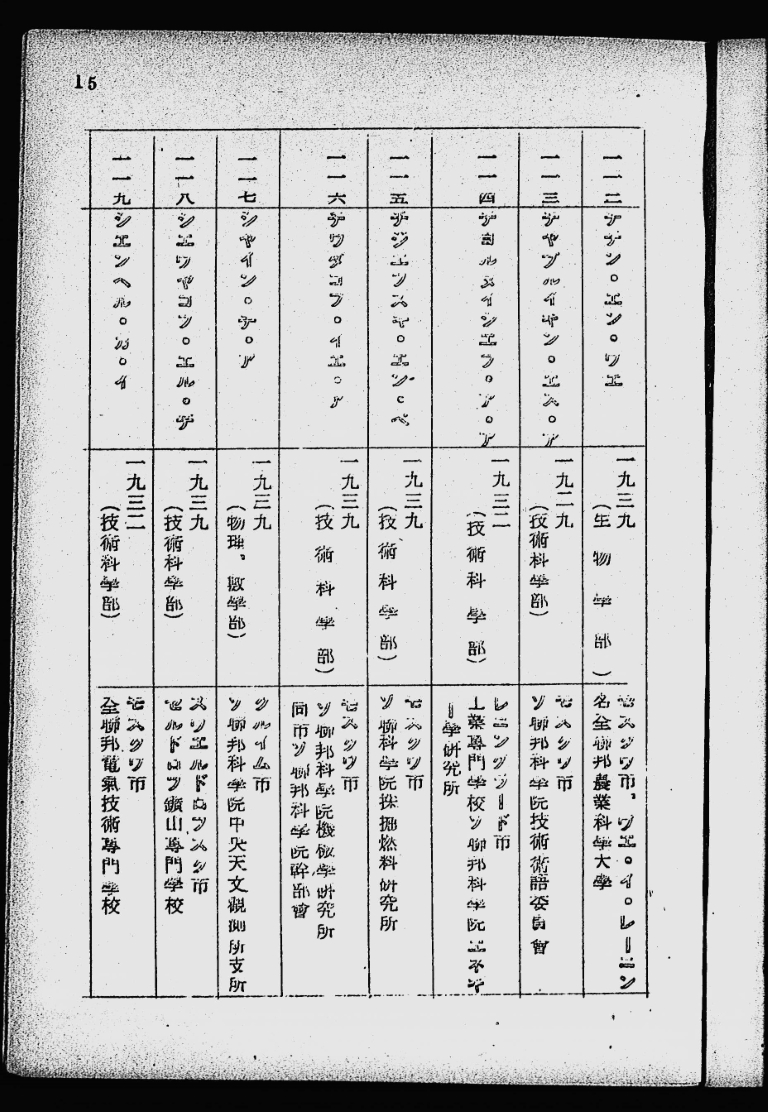 15
一一二
チチン。エン。ワエ
一九三九
(生物學部)
モスクワ市、ワエ・イ。レーニン
名全聯邦農業科學大學
一一三
チヤプルイギン。エス。ア
一九二九
(技術科學部)
モスクワ市
ソ聯邦科学院技術術語委員會
一一四
チヨルヌイシエフ。ア。ア
一九三二
(技術科學部)
レニングラード市
工業專門學校ソ聯邦科学院エネギ
ー學研究所
一一五
チジエフスキ。エン。ベ
一九三九
(技術科學部)
モスクワ市
ソ聯科学院採掘燃料研究所
一一六
チワダコフ。イエ。ア
一九三九
(技術科學部)
モスクワ市
ソ聯邦科学院機械学研究所
同市ソ聯邦科学院幹部會
一一七
シヤイン。ゲ。ア
一九三九
(物理、數學部)
クルイム市
ソ聯邦科学院中央天文観測所支所
一一八
シエワヤコフ。エル。デ
一九三九
(技術科學部)
スウエルドロフスク市
セルドロフ鑛山專門学校
一一九
シエンヘル。カ。イ
一九三二
(技術科學部)
モスクワ市
全聯邦電氣技術專門學校